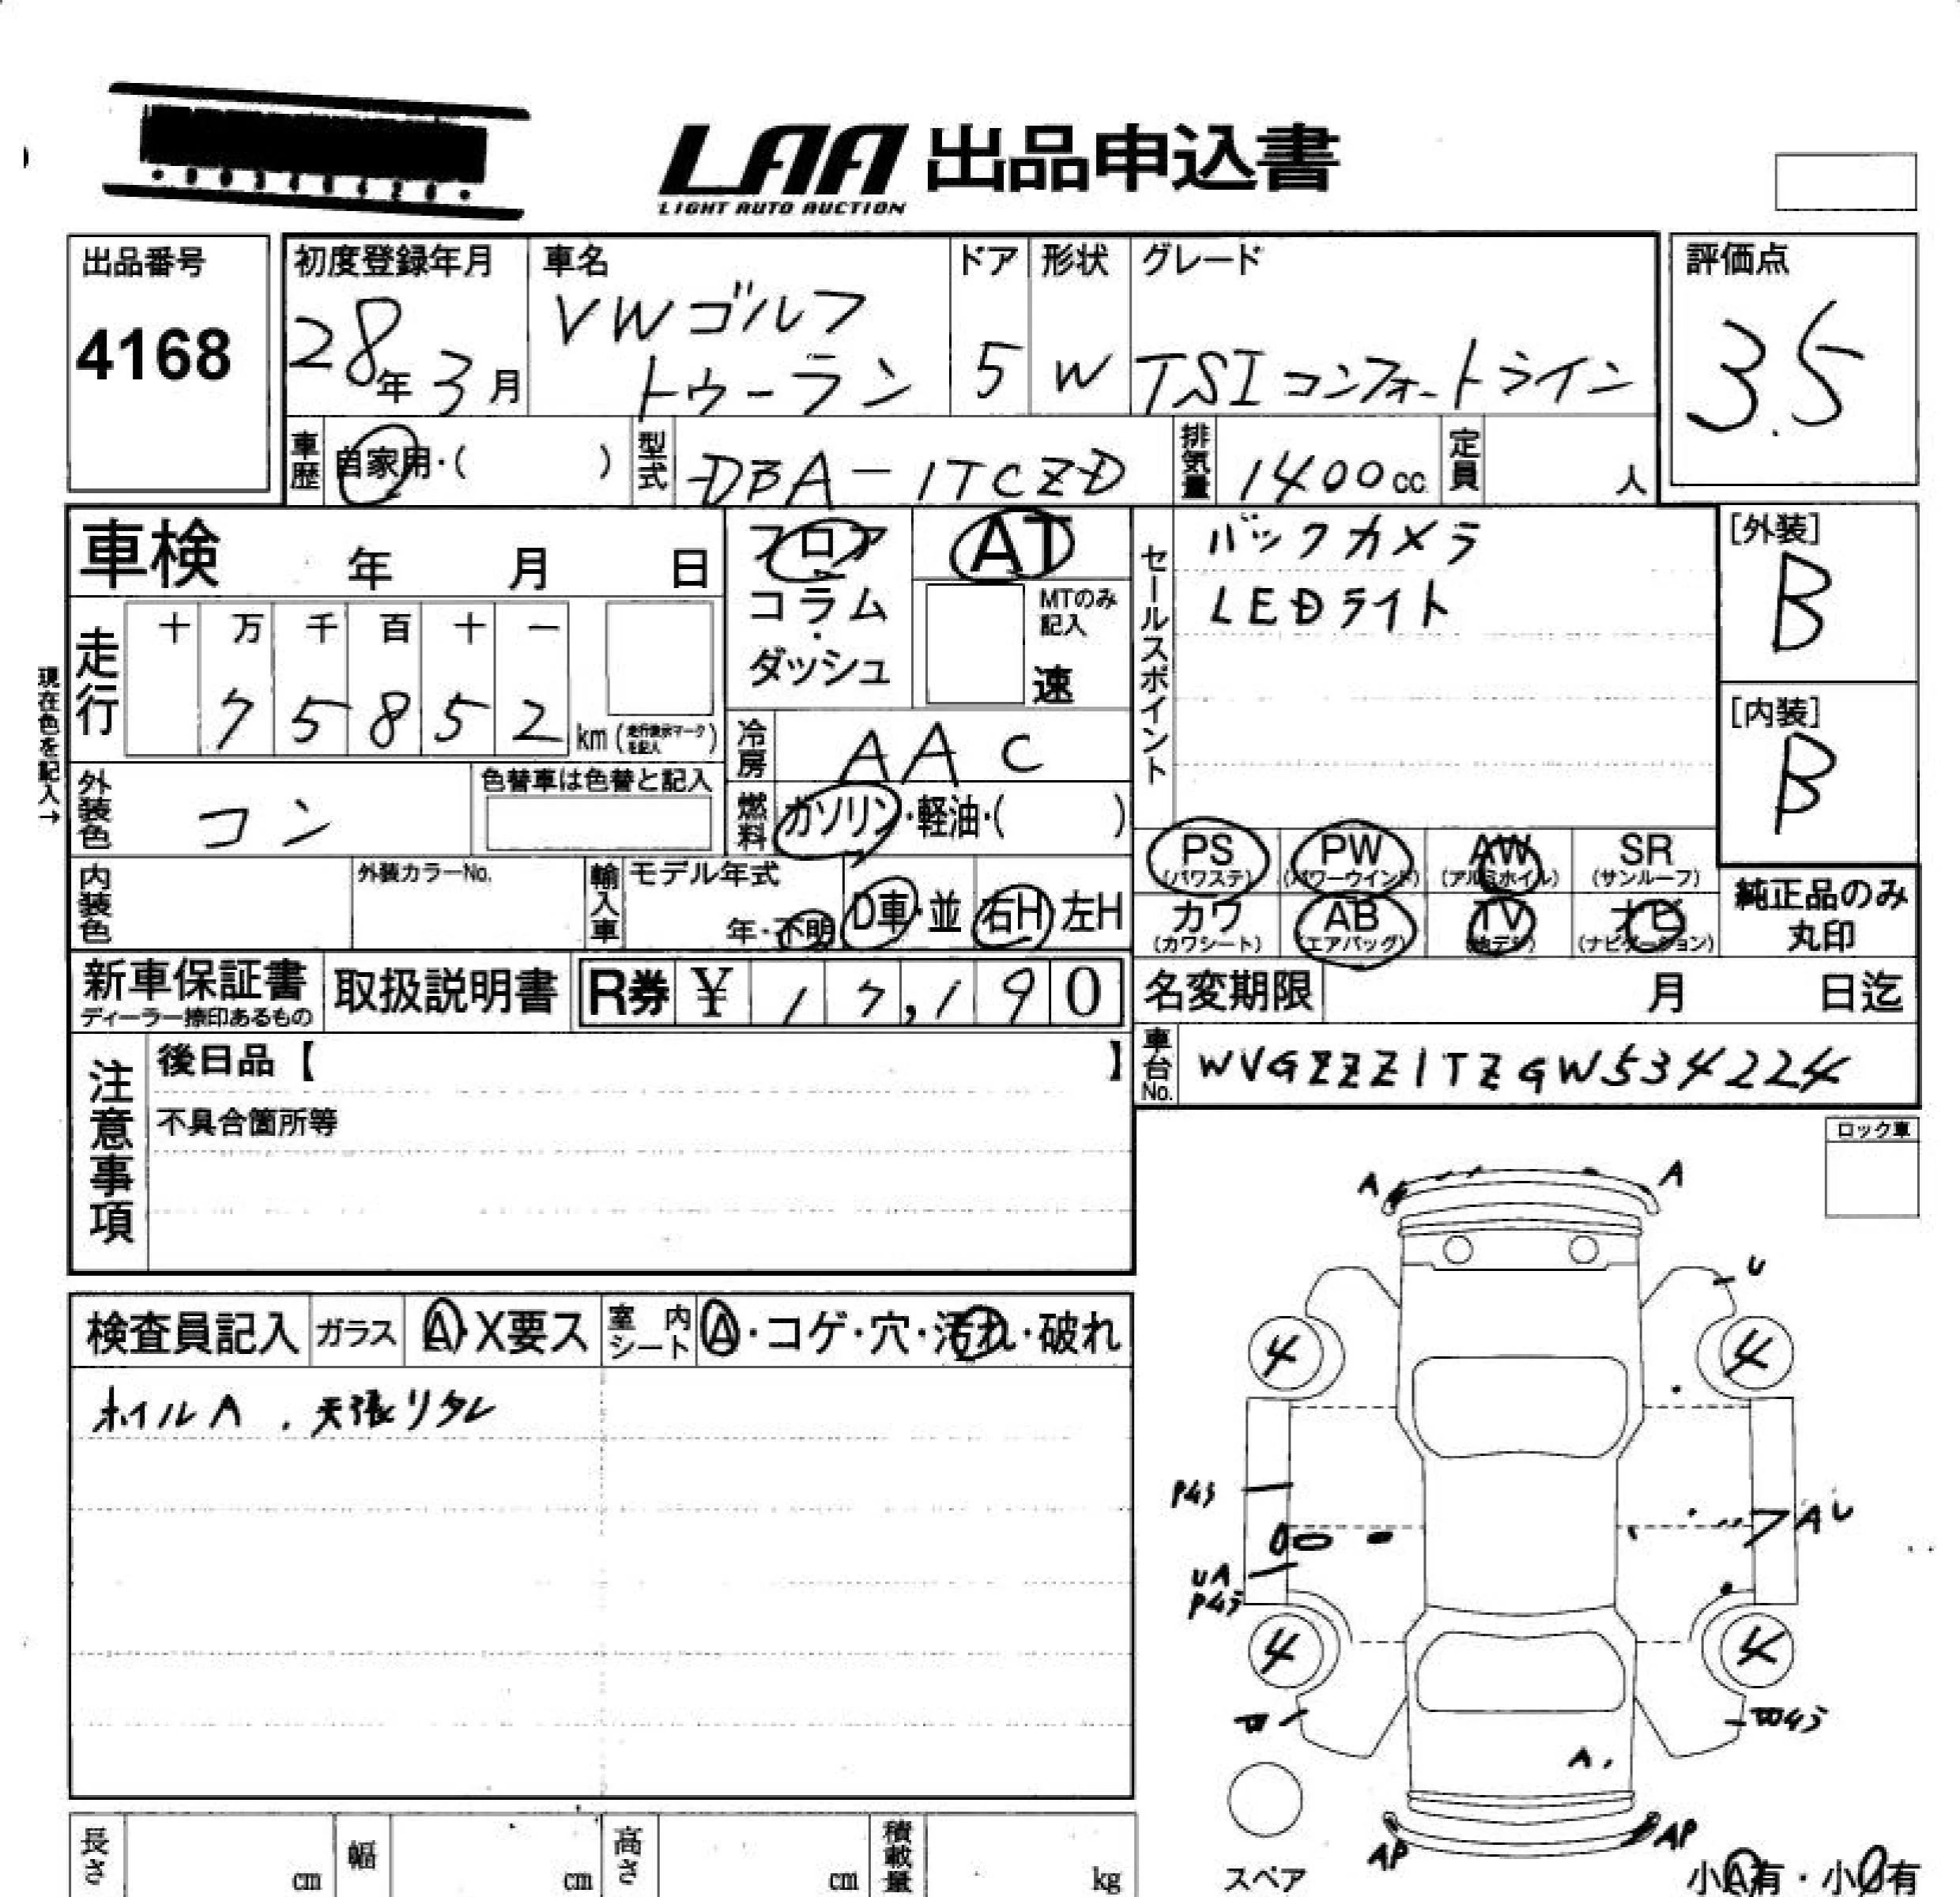 LAA 出品申込書
LIGHT AUTO AUCTION
出品番号
4168
初度登録年月
28年 3月
車名
VWゴルフ
トゥーラン
ドア
5
形状
W
グレード
TSIコンフォートライン
評価点
3.5
車歴 自家用・( )
型式 DBA-1TCZD
排気量 1400cc.
定員 人
車検 年 月 日
フロア
コラム
・
ダッシュ
AT
MTのみ
記入
速
セールスポイント
バックカメラ
LEDライト
[外装]
B
[内装]
B
現在色を記入→
走行
十 万 千 百 十 一
7 5 8 5 2 km(走行表示マークを記入)
冷房 AAC
外装色 コン
色替車は色替と記入
燃料 ガソリン・軽油・( )
PS
(パワステ)
PW
(パワーウインド)
AW
(アルミホイル)
SR
(サンルーフ)
内装色
外装カラーNo.
輸入車
モデル年式
年・不明
D車・並
右H 左H
カワ
(カワシート)
AB
(エアバッグ)
TV
(地デジ)
ナビ
(ナビゲーション)
純正品のみ
丸印
新車保証書
ディーラー捺印あるもの
取扱説明書
R券 ¥ 17,190
名変期限 月 日迄
車台No. WVGZZZ1TZGW534224
注意事項
後日品【 】
不具合箇所等
ロック車
検査員記入
ガラス A・X要ス
室内シート A・コゲ・穴・汚れ・破れ
ホイルA . 天張リタレ
A A
U
4 4
P43
AU
UA
P43
4 4
A.
AP AP
スペア
小A有・小U有
長さ cm
幅 cm
高さ cm
積載量 kg